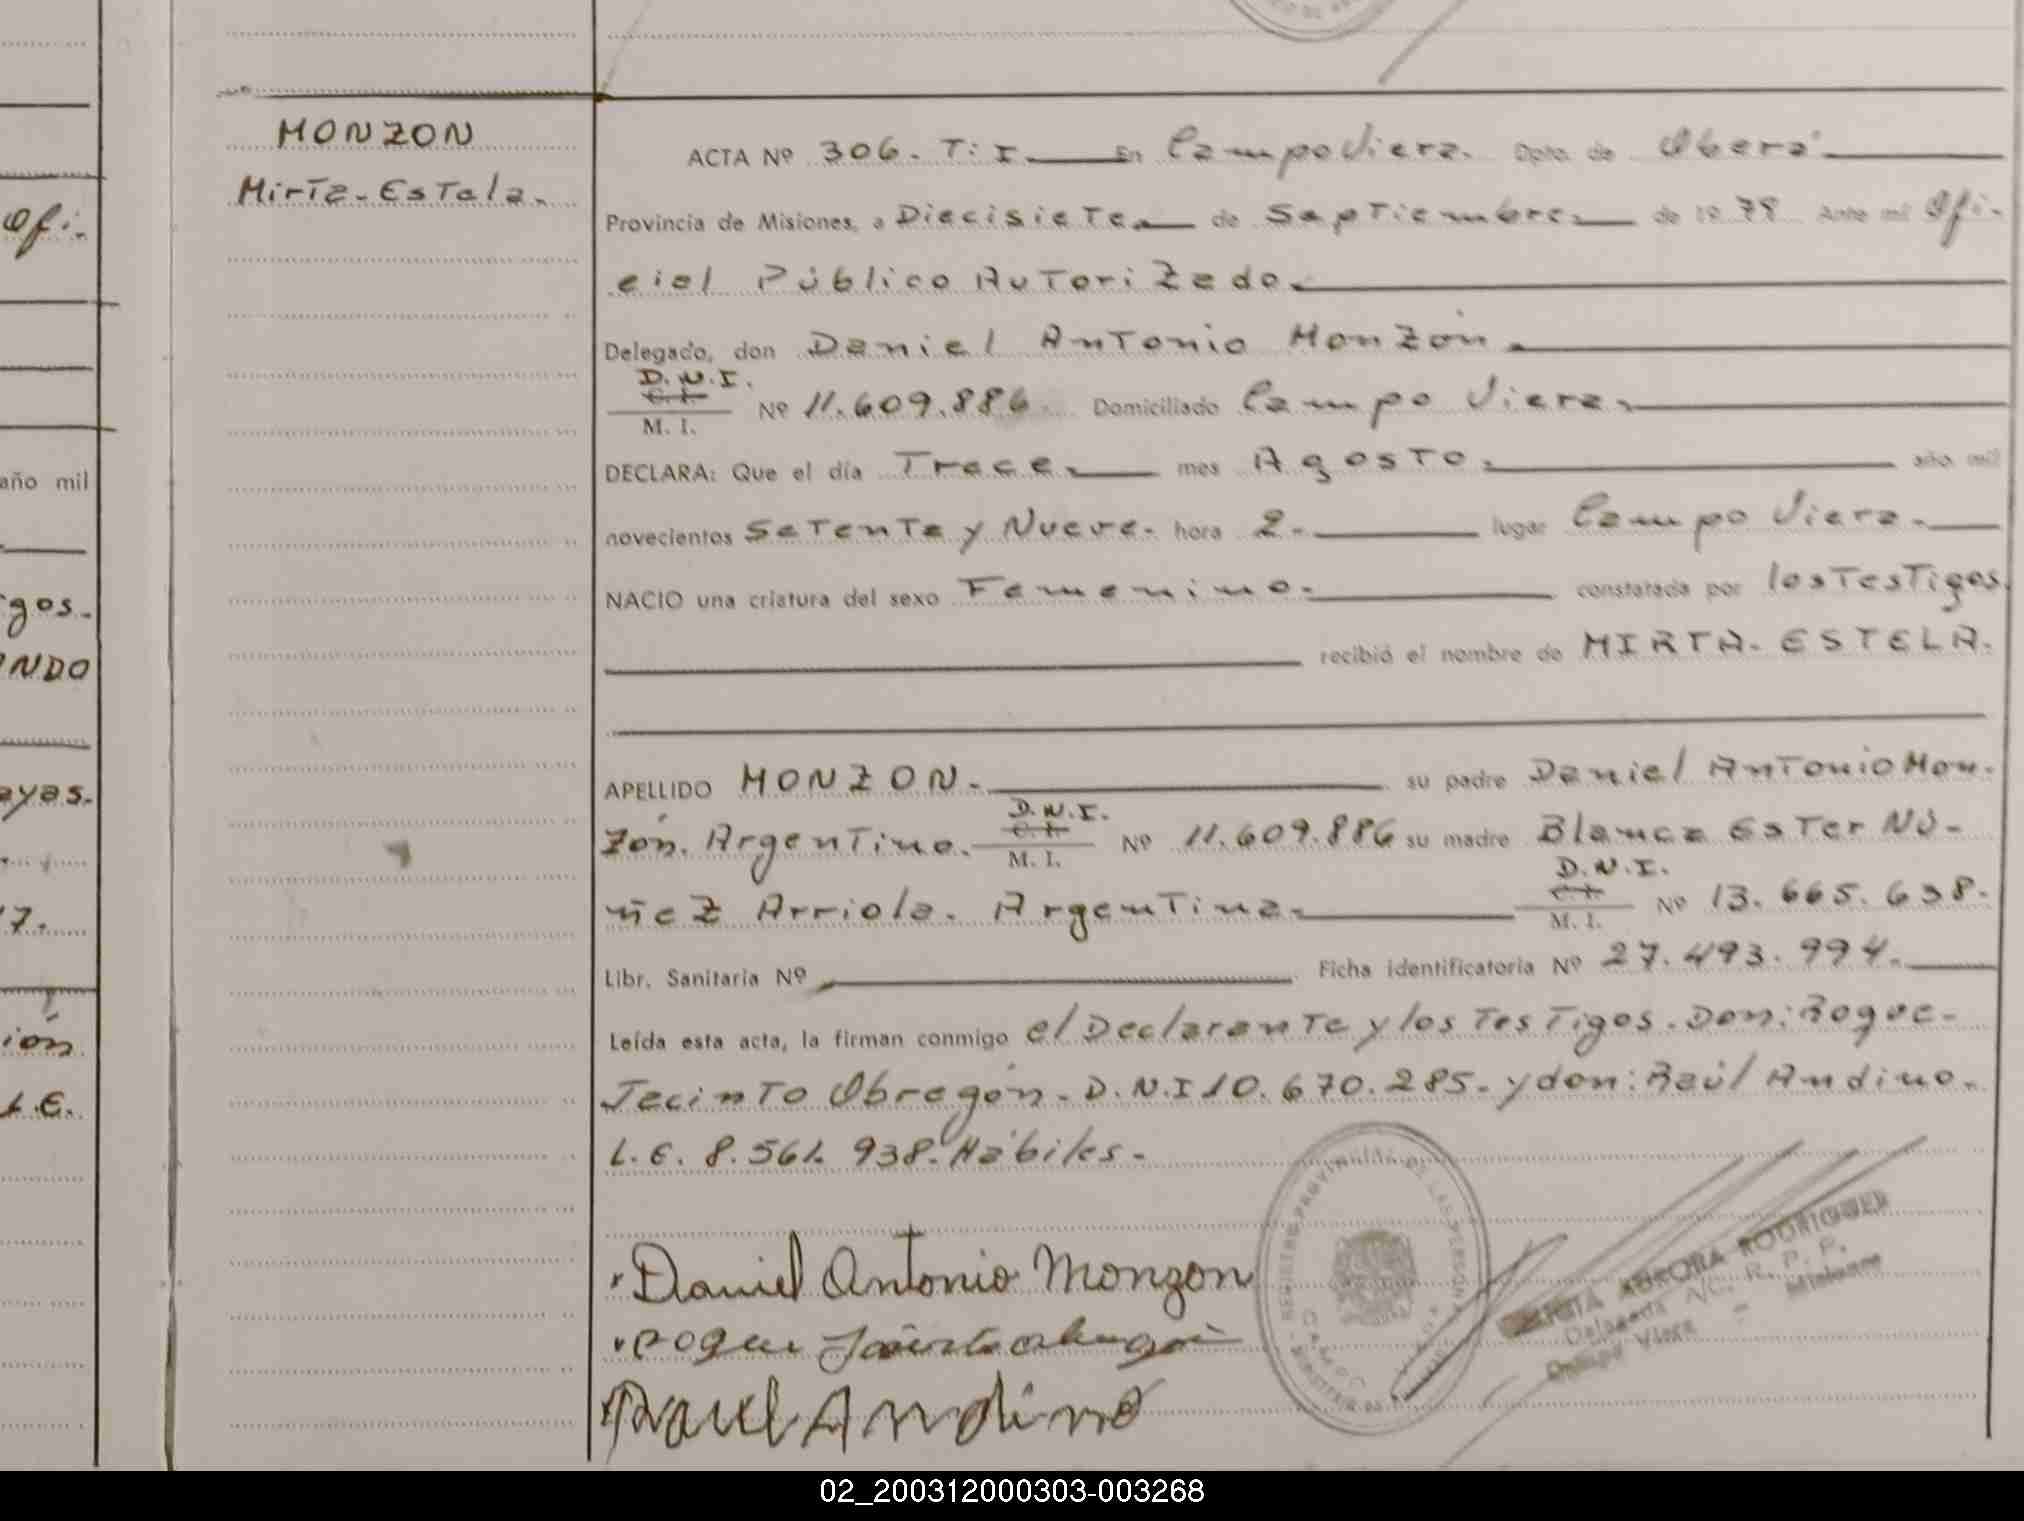 MONZON
Mirta-Estela.
ACTA Nº 306. T: I. En Campo Viera. Dpto. de Oberá
Provincia de Misiones, a Diecisiete de Septiembre de 1979 Ante mí Ofi-
cial Público Autorizado.
Delegado, don Daniel Antonio Monzón.
D.N.I.
C.I.
M. I. Nº 11.609.886 Domiciliado Campo Viera.
DECLARA: Que el día Trece. mes Agosto. año mil
novecientos Setenta y Nueve. hora 2. lugar Campo Viera.
NACIO una criatura del sexo Femenino. constatada por los Testigos.
recibió el nombre de MIRTA. ESTELA.
APELLIDO MONZON. su padre Daniel Antonio Mon-
zón. Argentino. D.N.I. C.I. M. I. Nº 11.609.886 su madre Blanca Ester Nú-
ñez Arriola. Argentina. D.N.I. C.I. M. I. Nº 13.665.638.
Libr. Sanitaria Nº Ficha identificatoria Nº 27.493.994.
Leída esta acta, la firman conmigo el Declarante y los Testigos. Don: Roque-
Jacinto Obregón. D.N.I 10.670.285. y don: Raúl Andino.
L.E. 8.561.938. Hábiles.
Daniel Antonio Monzon
Roque Jacinto Obregon
Raul Andino
REGISTRO PROVINCIAL DE LAS PERSONAS
AURORA RODRIGUEZ
Delegada A/C. R. P. P.
Campo Viera - Misiones
Ofi-
año mil
gos.
NDO
ayas.
7.
ión
L.E.
02_200312000303-003268